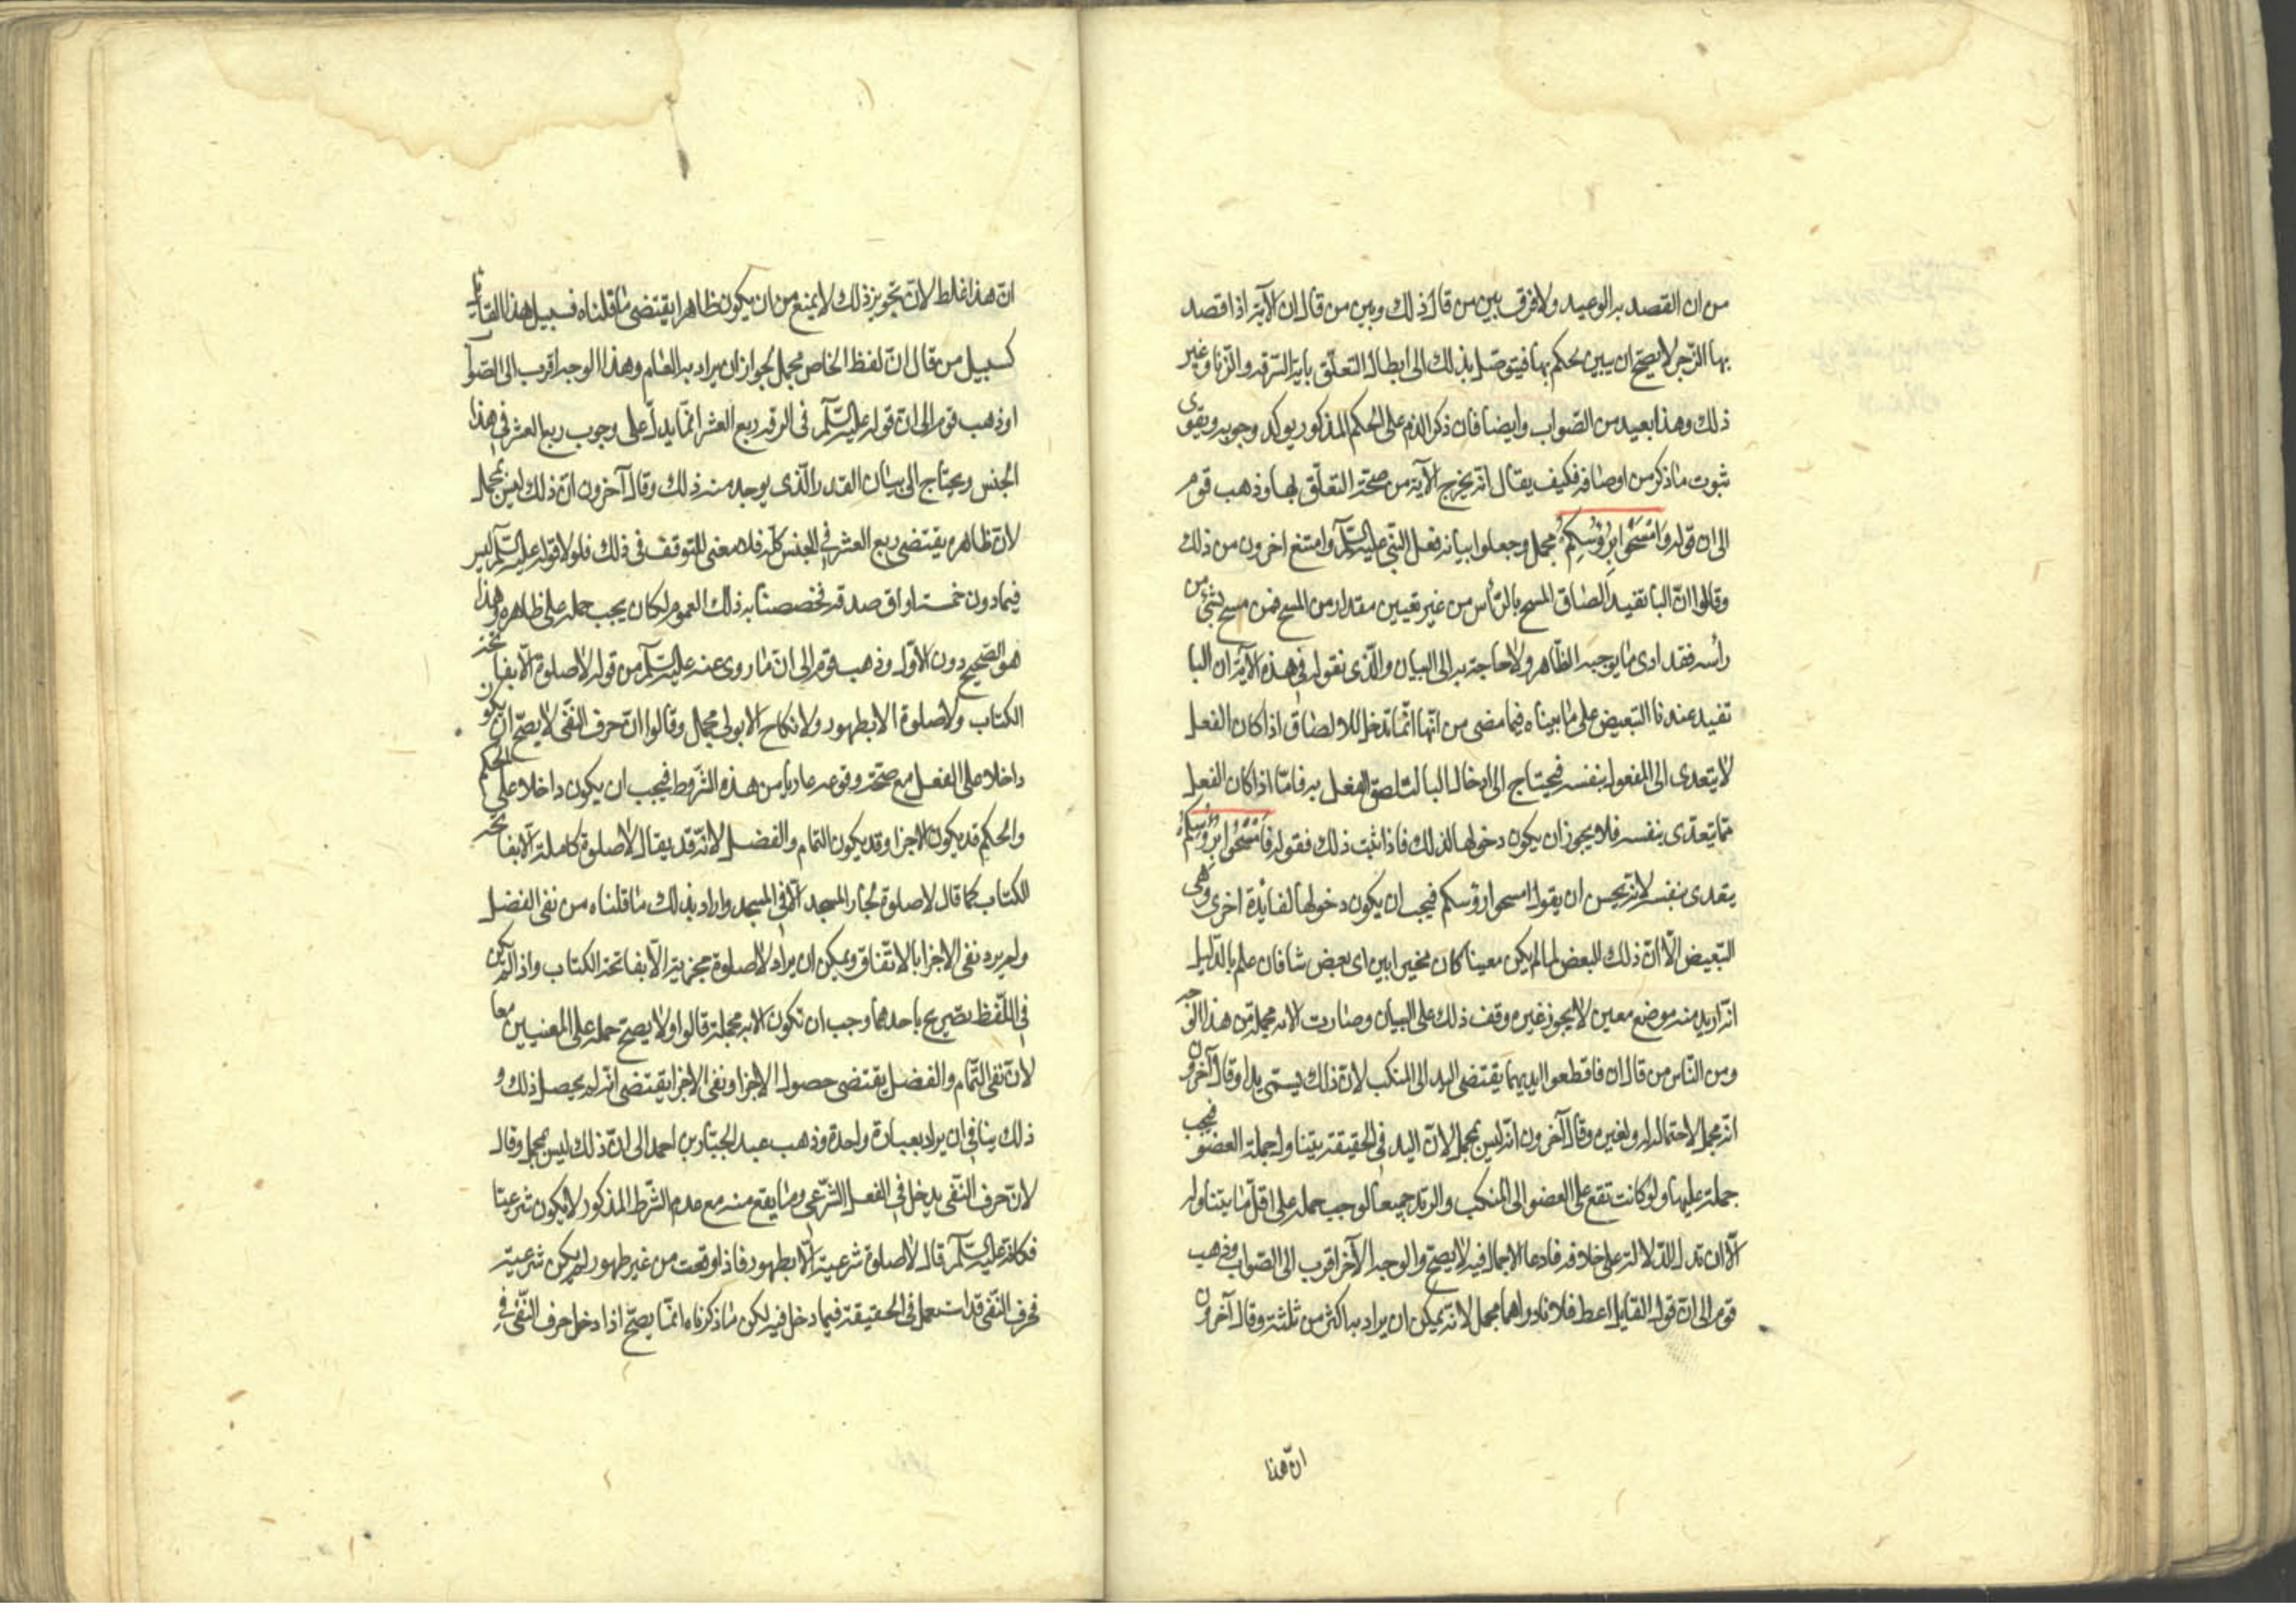 من ان القصد به الوعيد ولا فرق بين من قال ذلك وبين من قال ان الآية اذا قصد
بها الزجر لا يصح ان يبين لحكم بها فيتوصل بذلك الى ابطال التعلق باية السرقة والزنا وغير
ذلك وهذا بعيد من الصواب وايضا فان ذكر الذم على الحكم المذكور يوكد وجوبه ويقوى
ثبوت ما ذكر من اوصافه فكيف يقال انه يخرج الآية من صحة التعلق بها وذهب قوم
الى ان قوله وَامْسَحُوا بِرُؤُسِكُمْ مجمل وجعلوا بيانه فعل النبي عليه السلم وامتنع اخرون من ذلك
وقالوا ان البا تفيد الصاق المسح بالرأس من غير تعيين مقدار من المسح فمن مسح بشئ من
رأسه فقد ادى ما يوجبه الظاهر ولا حاجة به الى البيان والذى نقوله في هذه الآية ان البا
تفيد عندنا التبعيض على ما بيناه فيما مضى من انها انما تدخل للالصاق اذا كان الفعل
لا يتعدى الى المفعول بنفسه فيحتاج الى ادخال البا لتلصق الفعل به فاما اذا كان الفعل
مما يتعدى بنفسه فلا يجوز ان يكون دخولها لذلك فاذا ثبت ذلك فقوله فَامْسَحُوا بِرُؤُسِكُمْ
يتعدى بنفسه لانه يحسن ان يقول امسحوا رؤسكم فيجب ان يكون دخولها لفايدة اخرى وهى
التبعيض الّا ان ذلك البعض لما لم يكن معينا كان مخيرا بين اى بعض شا فان علم بالدليل
انه اريد منه موضع معين لا يجوز غيره وقف ذلك على البيان وصارت الايه مجملة من هذا الوجه
ومن الناس من قال ان فاقطعوا ايديهما يقتضى اليد الى المنكب لان ذلك يسمى يدا وقال آخرون
انه مجمل لاحتماله له ولغيره وقال آخرون انه ليس بمجمل لان اليد في الحقيقة يتناول جملة العضو فيجب
حمله عليها ولو كانت تقع على العضو الى المنكب والى الزند جميعا لوجب حمله على اقل ما يتناوله
الّا ان تدل الدلالة على خلافه فادعا الاجمال فيه لا يصح والوجه الآخر اقرب الى الصواب وذهب
قوم الى ان قول القايل اعط فلانا دراهما مجمل لانه يمكن ان يراد به اكثر من ثلثة وقال آخرون
ان هذا
ان هذا غلط لان تجويز ذلك لا يمنع من ان يكون ظاهرا يقتضى ما قلناه فسبيل هذا القائل
كسبيل من قال ان لفظ الخاص مجمل لجواز ان يراد به العام وهذا الوجه اقرب الى الصواب
اوذهب قوم الى ان قوله عليه السلم فى الرقه ربع العشر انما يدل على وجوب ربع العشر في هذا
الجنس ويحتاج الى بيان القدر الذى يوجد منه ذلك وقال آخرون ان ذلك ليس بمجمل
لان ظاهره يقتضى ربع العشر في الجنس كله فلا معنى للتوقف فى ذلك فلولا قوله عليه السلم ليس
فيما دون خمسة اواق صدقة فخصصنا به ذلك العموم لكان يجب حمله على ظاهره وهذا
هو الصحيح دون الاول وذهب قوم الى ان ما روى عنه عليه السلم من قوله لا صلوة الّا بفاتحة
الكتاب ولا صلوة الا بطهور ولا نكاح الا بولى مجمل وقالوا ان حرف النفى لا يصح ان يكون
داخلا على الفعل مع صحة وقوعه عاديا من هذه الشروط فيجب ان يكون داخلا على الحكم
والحكم قد يكون الاجزا وقد يكون التمام والفضل لانه قد يقال لا صلوة كاملة الّا بفاتحة
الكتاب كما قال لا صلوة لجار المسجد الّا في المسجد واراد بذلك ما قلناه من نفى الفضل
ولم يرد نفى الاجزا بالاتفاق ويمكن ان يراد لا صلوة مجزية الّا بفاتحة الكتاب واذا لم يكن
في اللفظ تصريح باحدهما وجب ان تكون الايه مجملة قالوا ولا يصح حمله على المعنيين معا
لان نفى التمام والفضل يقتضى حصول الاجزا ونفى الاجزا يقتضى انه لم يحصل ذلك و
ذلك ينافي ان يراد بعبارة واحدة وذهب عبد الجبار بن احمد الى ان ذلك ليس بمجمل وقال
لان حرف النفى يدخل في الفعل الشرعي وما يقع منه مع عدم الشرط المذكور لا يكون شرعيا
فكانه عليه السلم قال لا صلوة شرعية الّا بطهور فاذا وقعت من غير طهور لم يكن شرعية
فحرف النفى قد استعمل فى الحقيقة فيما دخل فيه لكن ما ذكرناه انما يصح اذا دخل حرف النفى في